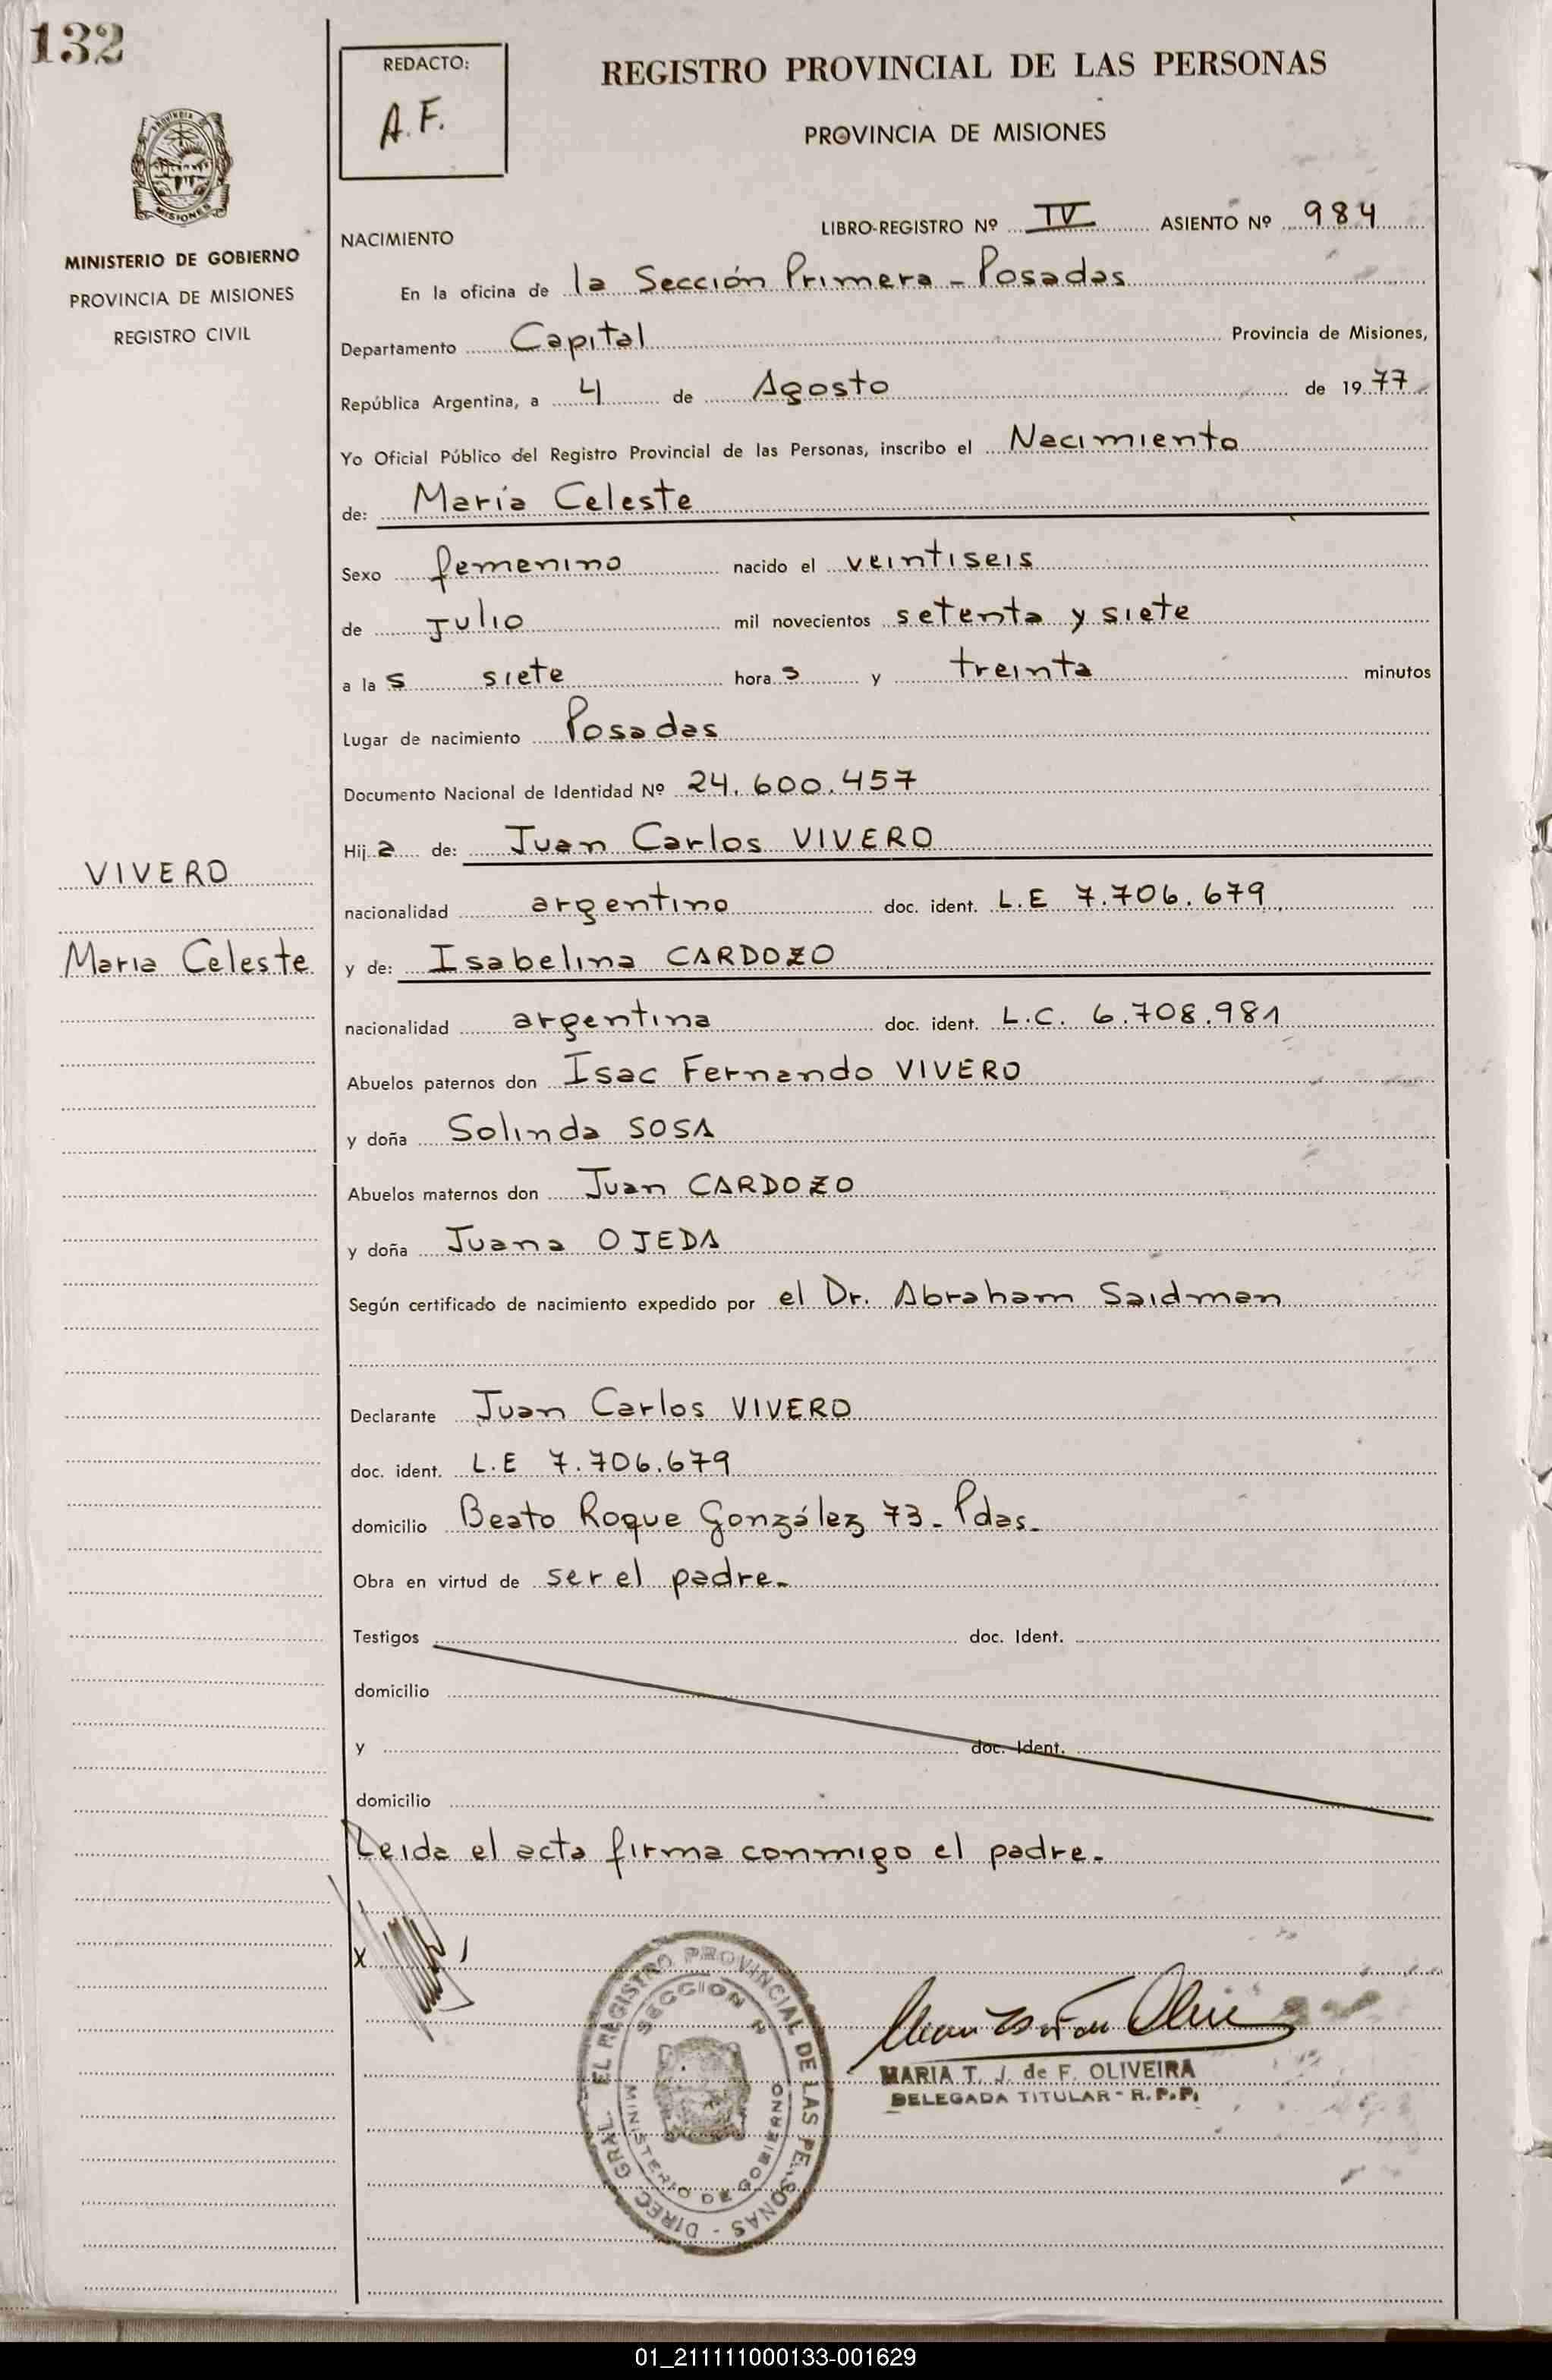 132
REDACTO:
A.F.
REGISTRO PROVINCIAL DE LAS PERSONAS
PROVINCIA DE MISIONES
PROVINCIA D
MISIONES
MINISTERIO DE GOBIERNO
PROVINCIA DE MISIONES
REGISTRO CIVIL
LIBRO-REGISTRO Nº IV ASIENTO Nº 984
NACIMIENTO
En la oficina de la Sección Primera - Posadas
Departamento Capital Provincia de Misiones,
República Argentina, a 4 de Agosto de 1977
Yo Oficial Público del Registro Provincial de las Personas, inscribo el Nacimiento
de: María Celeste
Sexo femenino nacido el veintiseis
de Julio mil novecientos setenta y siete
a la s siete hora s y treinta minutos
Lugar de nacimiento Posadas
Documento Nacional de Identidad Nº 24.600.457
Hij a de: Juan Carlos VIVERO
VIVERO
nacionalidad argentino doc. ident. L.E 7.706.679
Maria Celeste
y de: Isabelina CARDOZO
nacionalidad argentina doc. ident. L.C. 6.708.981
Abuelos paternos don Isac Fernando VIVERO
y doña Solinda SOSA
Abuelos maternos don Juan CARDOZO
y doña Juana OJEDA
Según certificado de nacimiento expedido por el Dr. Abraham Saidman
Declarante Juan Carlos VIVERO
doc. ident. L.E 7.706.679
domicilio Beato Roque González 73- Pdas-
Obra en virtud de ser el padre-
Testigos doc. Ident.
domicilio
y doc. Ident.
domicilio
Leida el acta firma conmigo el padre-
x
DIREC GRAL. EL REGISTRO PROVINCIAL DE LAS PERSONAS -
SECCION
MINISTERIO DE GOBIERNO
MARIA T. J. de F. OLIVEIRA
DELEGADA TITULAR - R.P.P.
01_211111000133-001629